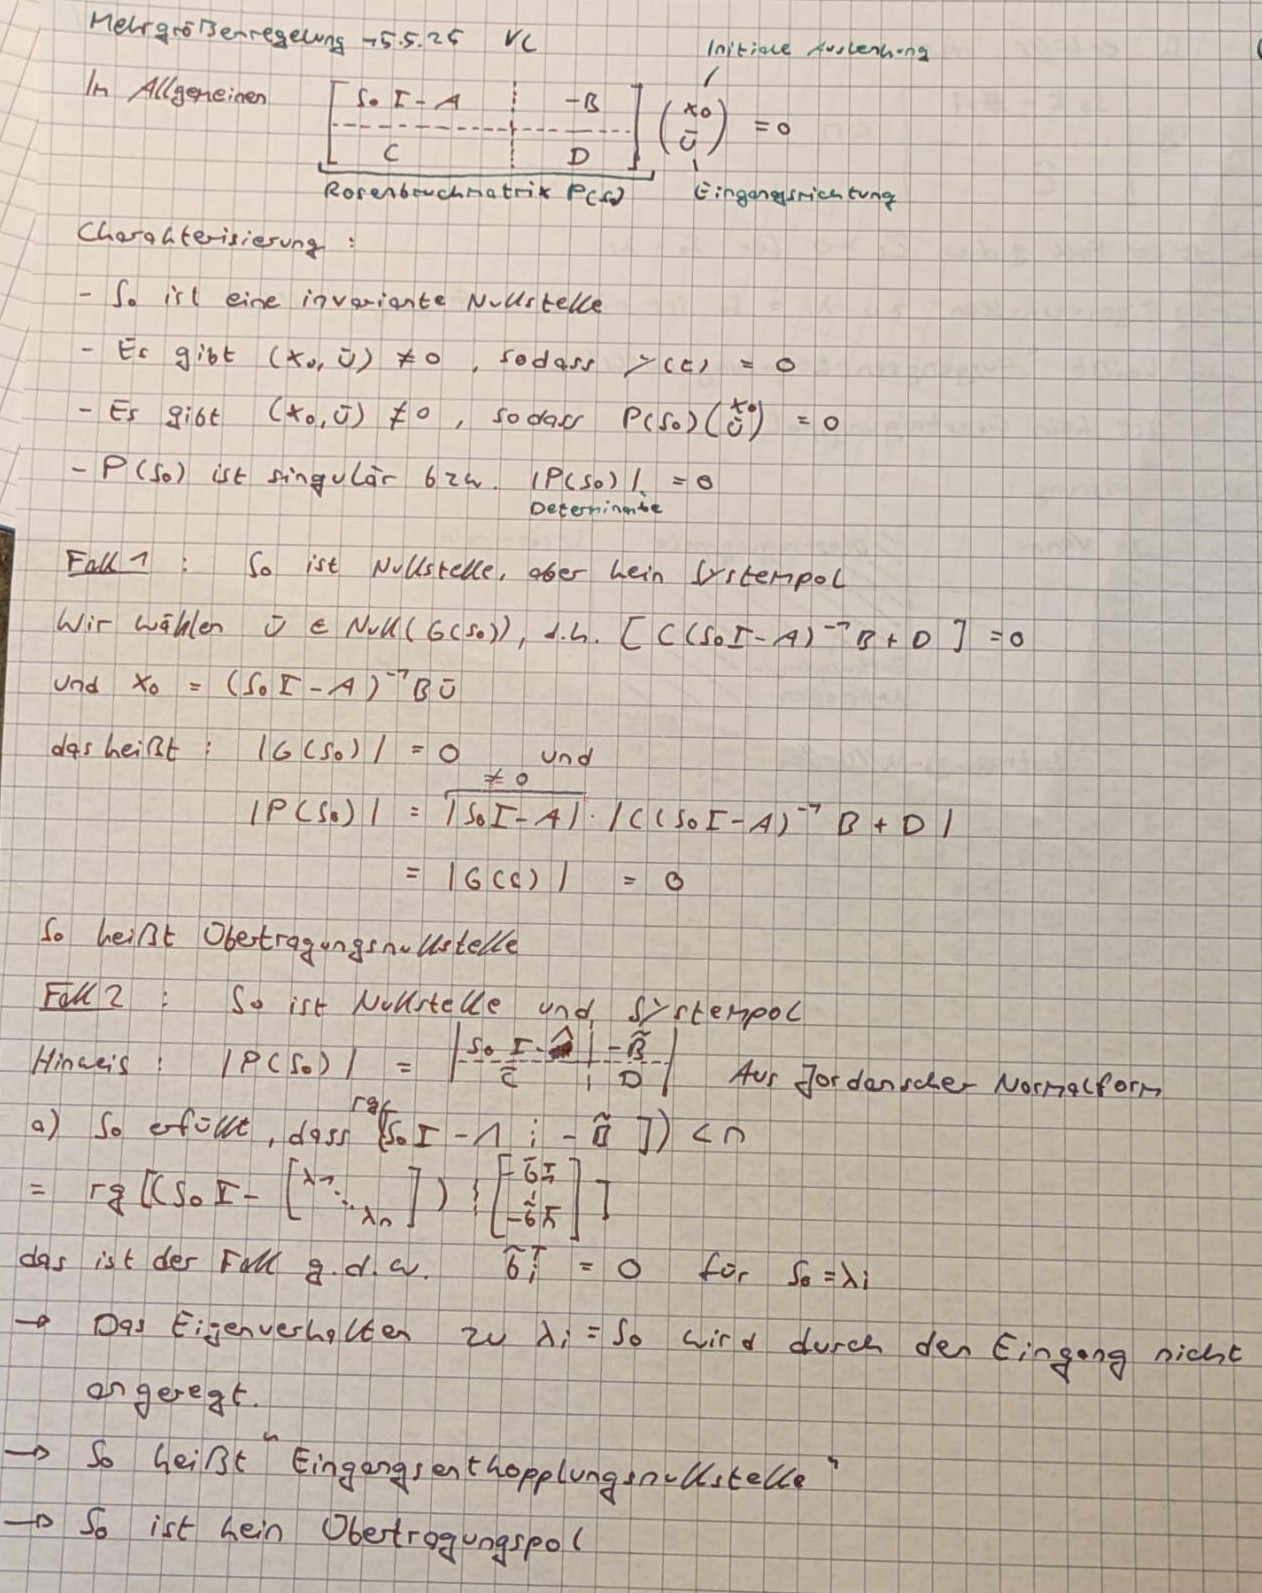 Mehrgrößenregelung -15.5.25 VL
Initiale Auslenkung
Im Allgemeinen [ s₀I-A ¦ -B ; C ¦ D ] (x₀ ; ū) = 0
Rosenbruchmatrix P(s₀) Eingangsrichtung
Charakterisierung :
- S₀ ist eine invariante Nullstelle
- Es gibt (x₀, ū) ≠ 0 , sodass y(t) = 0
- Es gibt (x₀, ū) ≠ 0 , sodass P(s₀)(x₀ ; ū) = 0
- P(s₀) ist singulär bzw. |P(s₀)| = 0
Determinante
Fall 1 : S₀ ist Nullstelle, aber kein Systempol
Wir wählen ū ∈ Null(G(s₀)), d.h. [C(s₀I-A)⁻¹B+D] = 0
und x₀ = (s₀I-A)⁻¹Bū
das heißt : |G(s₀)| = 0 und
≠ 0
|P(s₀)| = |s₀I-A| · |C(s₀I-A)⁻¹B+D|
= |G(s)| = 0
S₀ heißt Übertragungsnullstelle
Fall 2 : S₀ ist Nullstelle und Systempol
Hinweis : |P(s₀)| = | s₀I-Λ ¦ -B̃ ; C̃ ¦ D | Aus Jordanscher Normalform
a) S₀ erfüllt, dass rg([s₀I-Λ ¦ -B̃]) < n
= rg[(s₀I-[λ₁ ⋱ λₙ]) ¦ [-b̃₁ᵀ ⋮ -b̃ₙᵀ]]
das ist der Fall g.d.w. b̃ᵢᵀ = 0 für s₀=λᵢ
→ Das Eigenverhalten zu λᵢ=s₀ wird durch den Eingang nicht
angeregt.
→ S₀ heißt "Eingangsentkopplungsnullstelle"
→ S₀ ist kein Übertragungspol